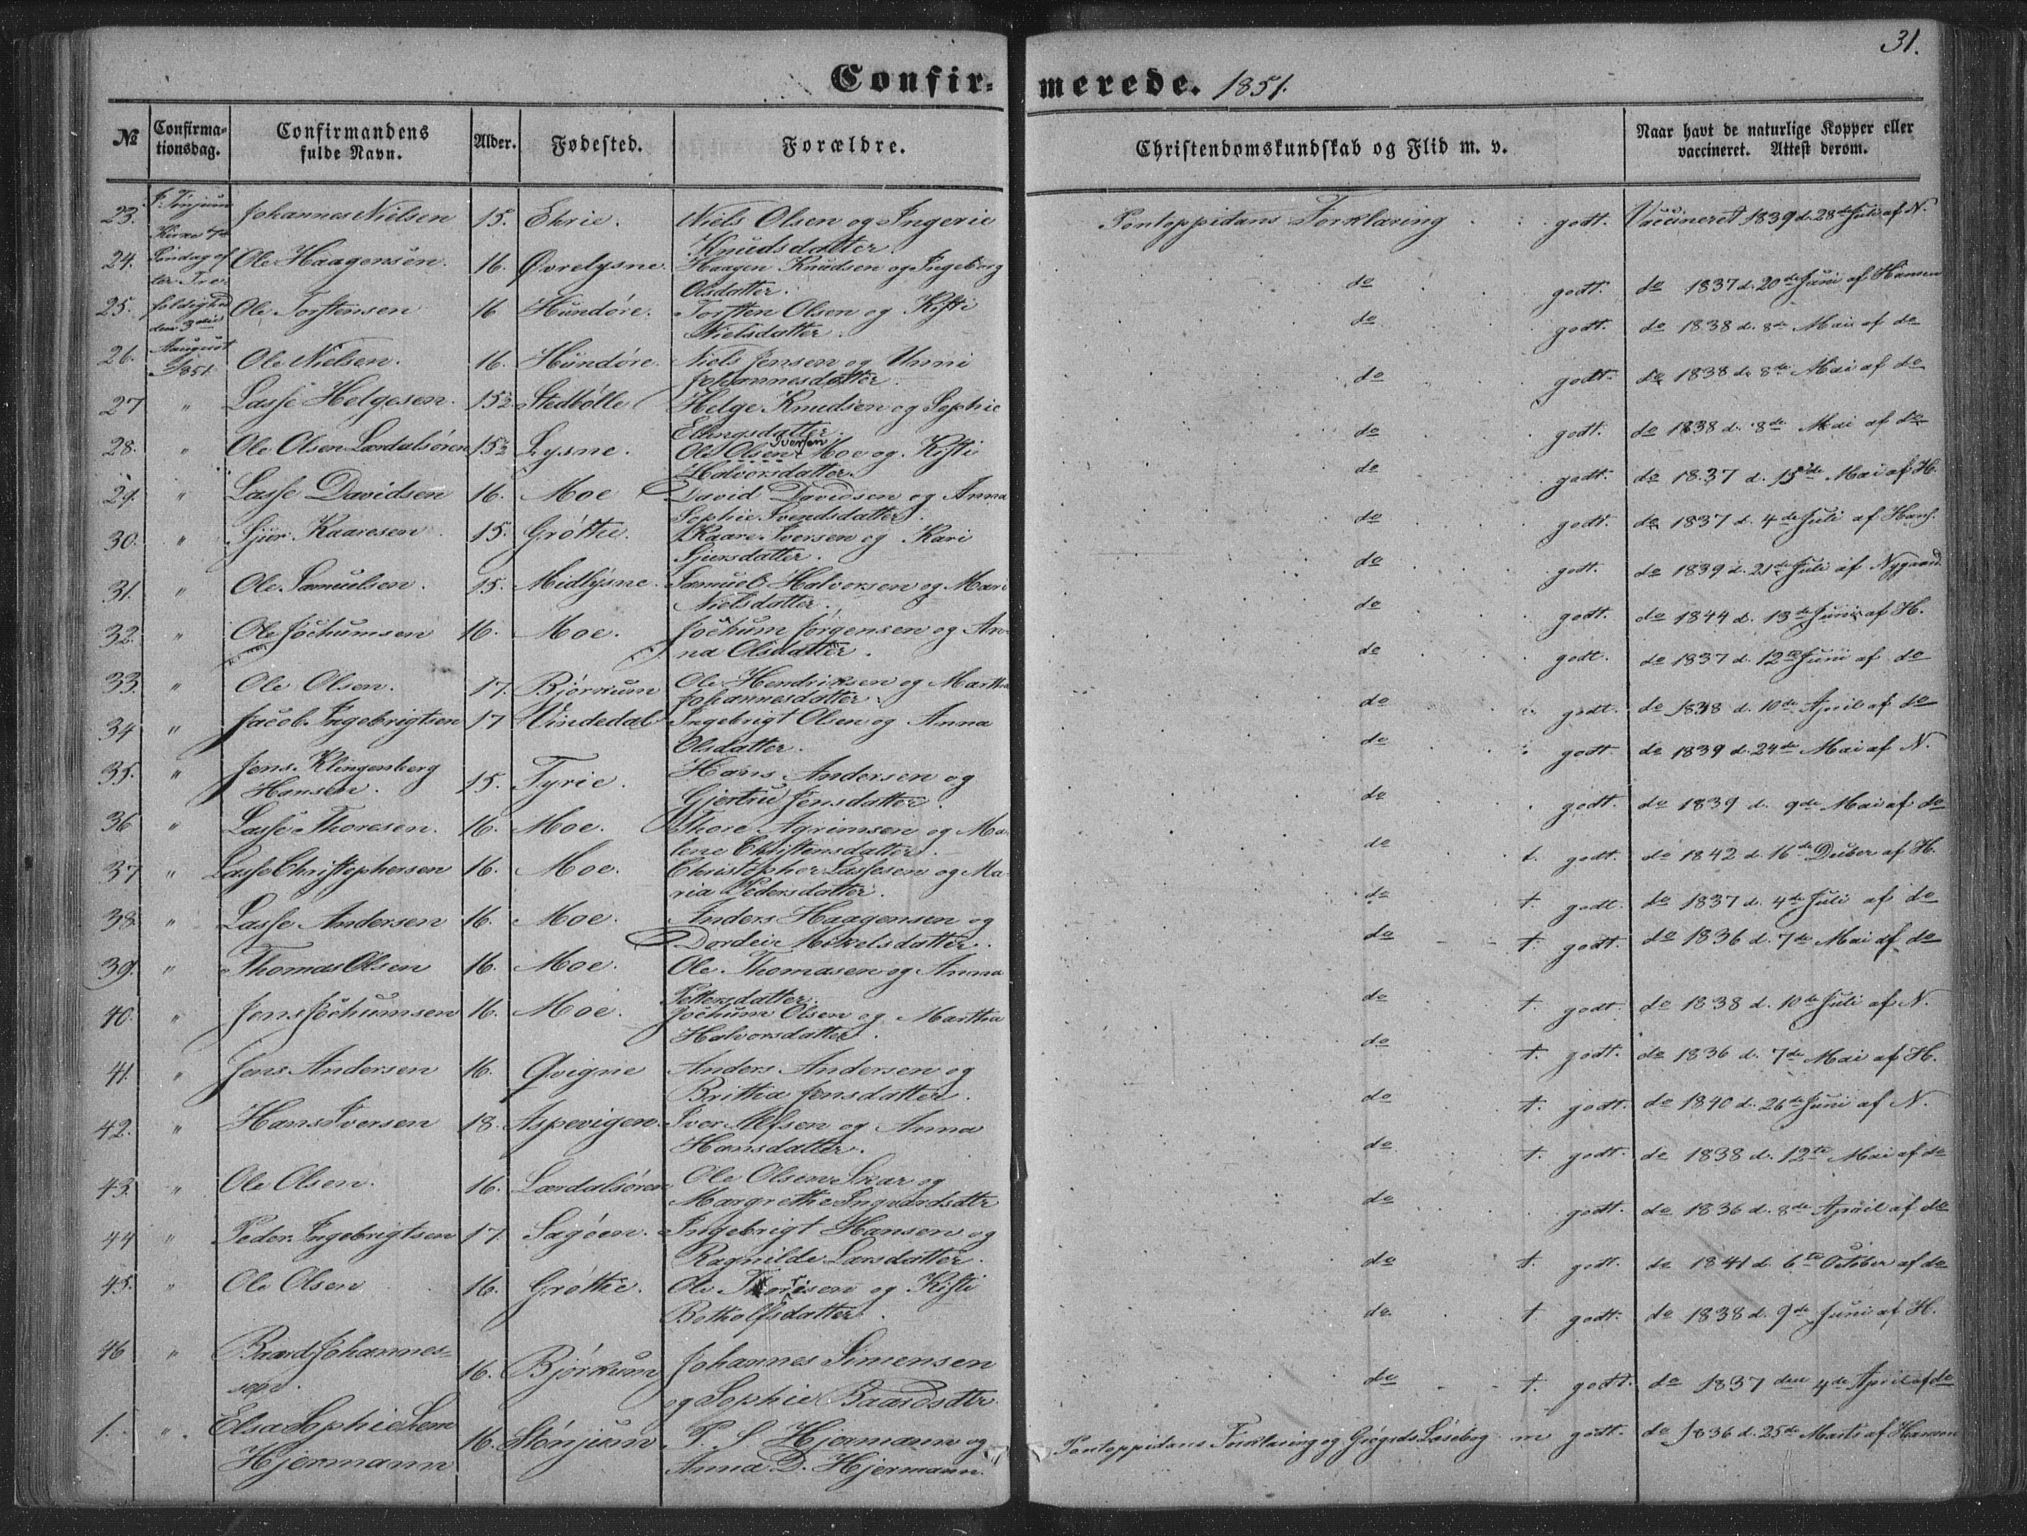 31.
Confir- merede. 1851.
№ Confirma-tionsdag. Confirmandens fulde Navn. Alder. Fødested. Forældre. Christendomskundskab og Flid m. v. Naar havt de naturlige Kopper eller vaccineret. Attest derom.
23. Johannes Nielsen 15. Ehrie. Niels Olsen og Ingerie Pontoppidans Forklaring godt. Vaccineret 1839 d. 28de Juli af N.
Kirke Knudsdatter.
24. Søndag ef Ole Haagensen. 16. Øvrelysne. Haagen Knudsen og Ingeborg do godt. do 1837 d. 20de Juni af Hansen
ter Tre- Olsdatter.
25. foldighed Ole Torstensen 16 Hundøre. Torsten Olsen og Kisti do godt. do 1838 d. 8de Mai af do
den 3die Nielsdatter.
26. August Ole Nielsen. 16. Hundøre. Niels Jensen og Unni do godt. do 1838 d. 8de Mai af do
1851. Johannesdatter.
27 " Lasse Helgesen. 15½ Stedbølle Helge Knudsen og Sophie do godt. do 1838 d. 8de Mai af do
Ellingsdatter.
28. " Ole Olsen Lærdalsøren 15½ Lysne. Ole Olsen Iversen Moe og Kisti do godt. do 1837 d. 15de Mai af H.
Halvorsdatter
29. " Lasse Davidsen 16. Moe David Davidsen og Anna do godt. do 1837 d. 4de Juli af Hans.
Sophie Svendsdatter.
30. " Sjur Kaaresen 15. Grøthe. Kaare Iversen og Kari do godt. do 1839 d. 21de Juli af Nygaard.
Sjursdatter.
31. " Ole Samuelsen. 15. Midlysne. Samuel Halvorsen og Mari do godt. do 1844 d. 13de Juni af H.
Nielsdatter.
32. " Ole Jochumsen 16. Moe. Jochum Jørgensen og An- do godt. do 1837 d. 12te Juni af do
na Olsdatter.
33. " Ole Olsen. 17. Bjørkum Ole Hendriksen og Martha do godt. do 1838 d. 10de April af do
Johannesdatter
34 " Jacob Ingebrigtsen 17 Vindedal Ingebrigt Olsen og Anna do godt. do 1839 d. 24de Mai af N.
Olsdatter.
35. " Jens Klingenberg Hansen. 15. Tyrie. Hans Andersen og do godt. do 1839 d. 9de Mai af do
Gjertru Jensdatter.
36 " Lasse Thoresen. 16. Moe. Thore Agrimsen og Ma- do t. godt. do 1842 d. 16de Decber af H.
lene Christensdatter.
37 " Lasse Christophersen 16. Moe. Christopher Lassesen og Ma- do t. godt. do 1837 d. 4de Juli af do
ria Pedersdatter.
38. " Lasse Andersen 16. Moe. Anders Haagensen og do t. godt. do 1836 d. 7de Mai af do
Dordei Mikelsdatter.
39. " Thomas Olsen 16. Moe. Ole Thomasen og Anna do t. godt. do 1838 d. 10de Juli af N.
Pettersdatter.
40. " Jens Jochumsen 16. Moe. Jochum Olsen og Martha do t. godt. do 1836 d. 7de Mai af H.
Halvorsdatter.
41. " Jens Andersen 16. Qvigne Anders Andersen og do t. godt. do 1840 d. 26de Juni af N.
Britha Jensdatter.
42. " Hans Iversen 18. Aspevigen. Iver Alfsen og Anna do t. godt. do 1838 d. 12te Mai af do
Hansdatter.
43. " Ole Olsen. 16. Lærdalsøren Ole Olsen Skar og do godt. do 1836 d. 8de April af do
Margrethe Ingvardsdtr
44 " Peder Ingebrigtsen 17. Sagøen. Ingebrigt Hansen og do t. godt. do 1841 d. 6te October af do
Ragnilde Larsdatter.
45. " Ole Olsen 16. Grøthe. Ole Thoresen og Kisti do t godt. do 1838 d. 9de Juni af H.
Botholfsdatter.
46 " Baard Johannes-sen. 16. Bjørkum Johannes Simensen do t. godt. do 1837 den 4de April af do
og Sophie Baardsdtr
1. " Elsa Sophie Lem Hjermann 16. Stønjum. P. S. Hjermann og Pontoppidans Forklaring og Grøgds Læsebog m godt. do 1836 d. 25de Marts af Hansen
Anna D. Hjermann.